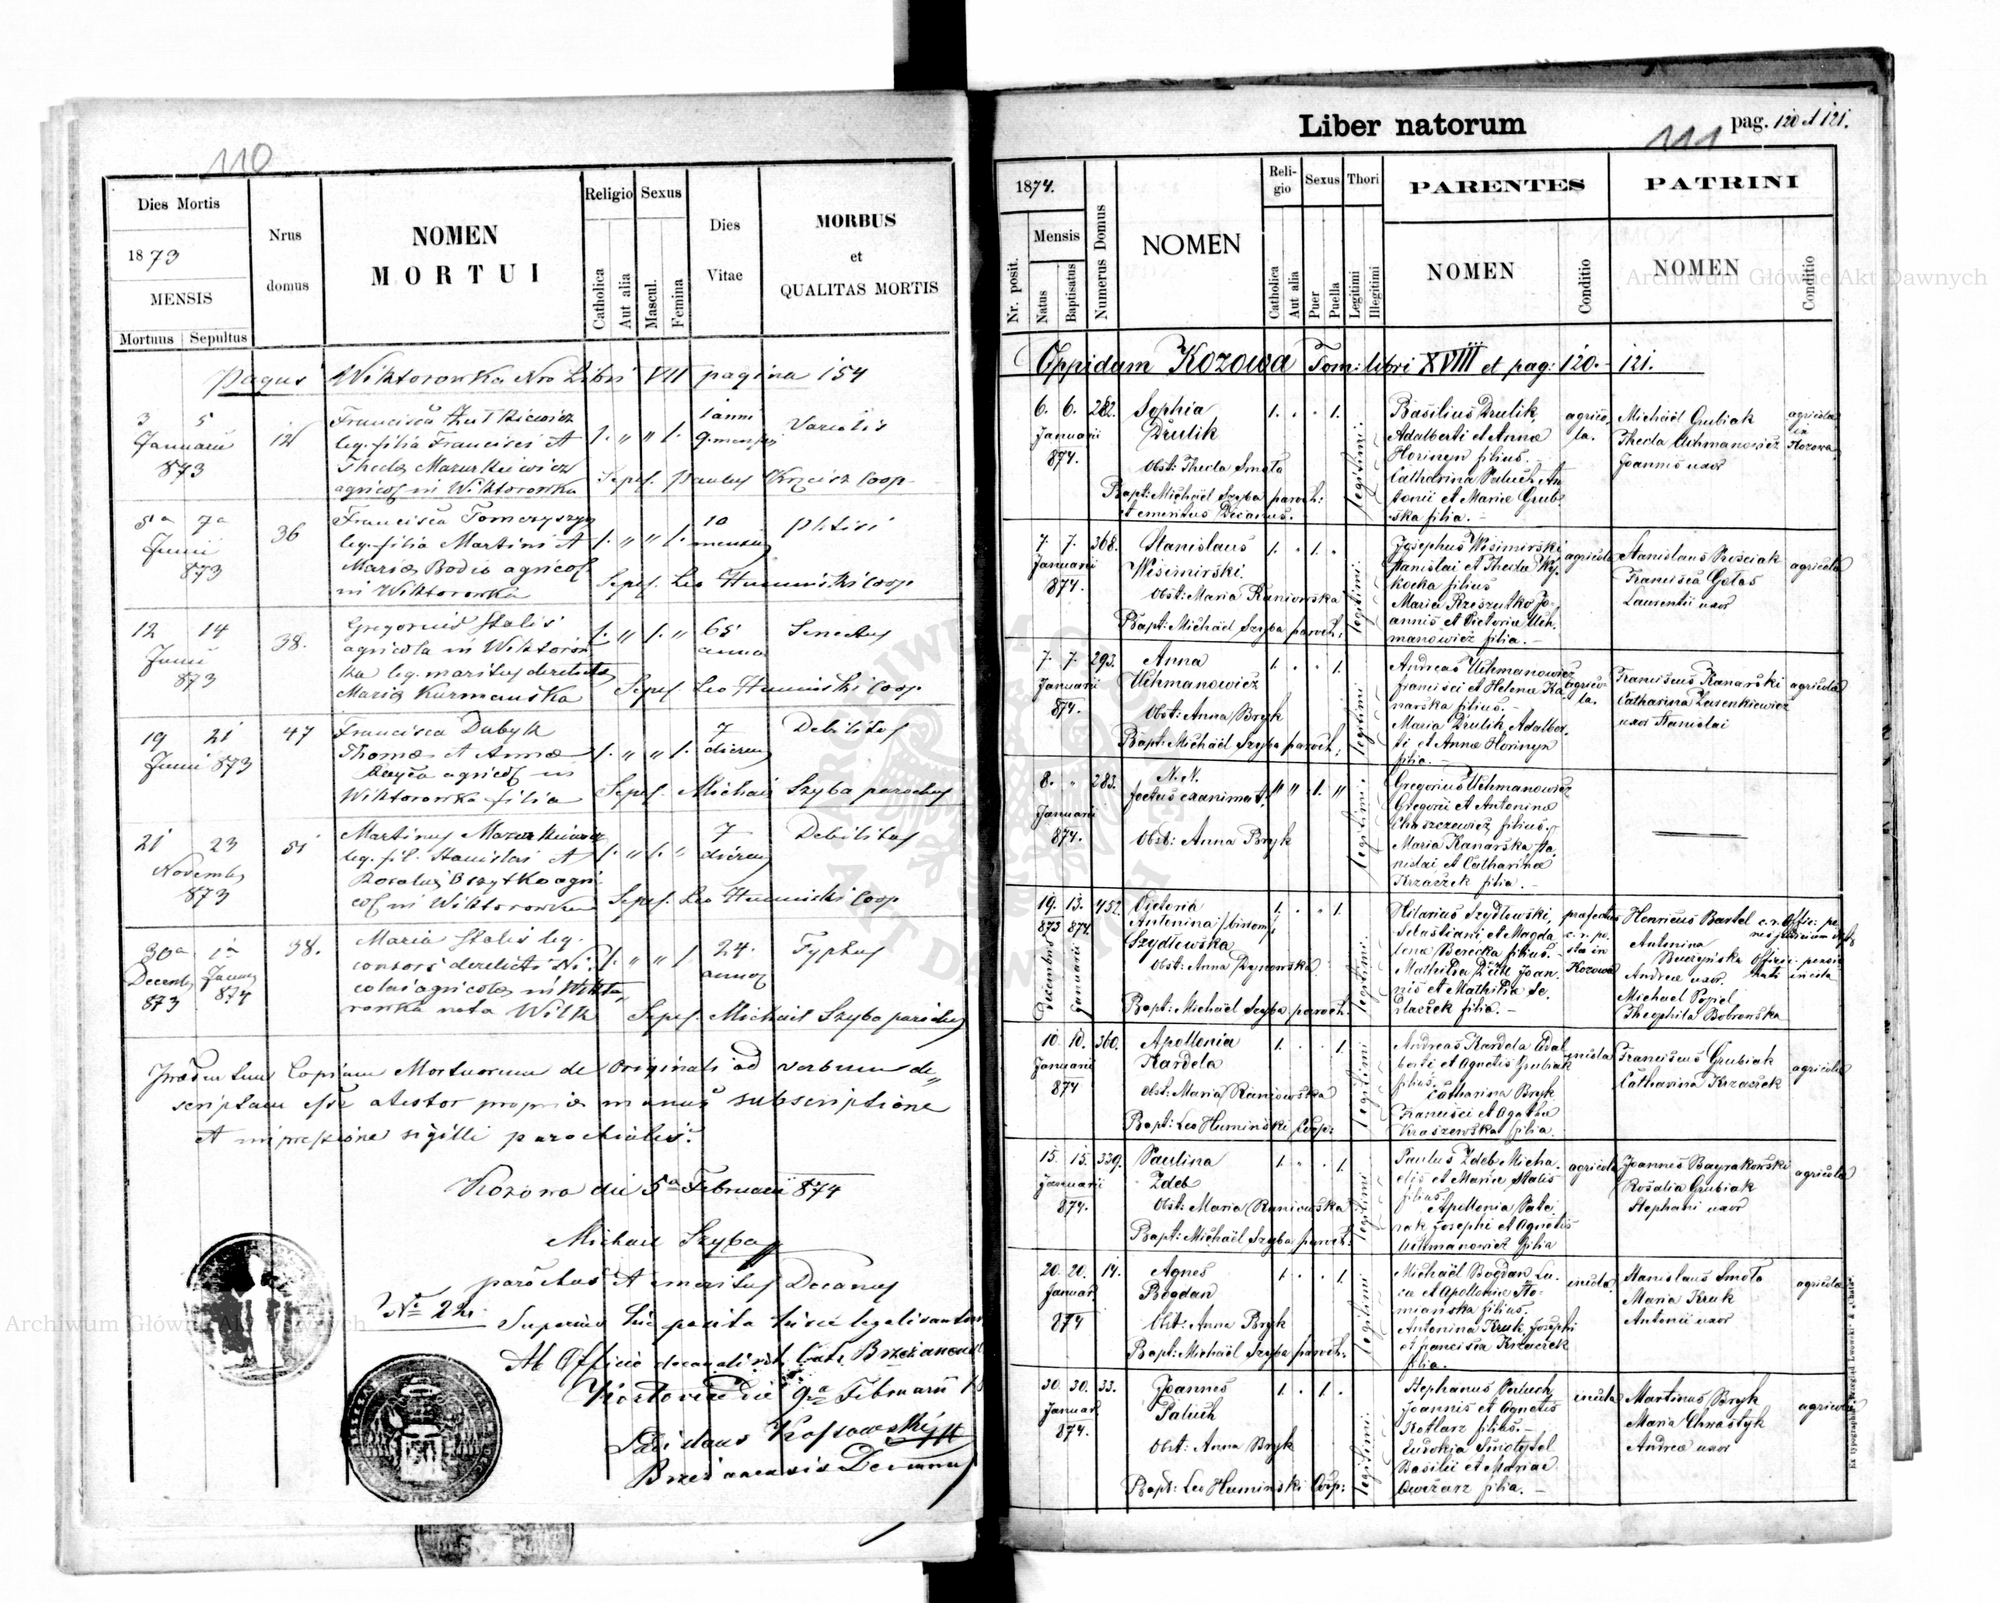 110
Dies Mortis
1873
MENSIS
Mortuus Sepultus
Nrus
domus
NOMEN
MORTUI
Religio
Catholica
Aut alia
Sexus
Mascul.
Femina
Dies
Vitae
MORBUS
et
QUALITAS MORTIS
Pagus Wiktorowka Nro Libri VII pagina 154
3 5
Januarii
873
Francisca
leg. filia Francisci et
Thecla Mazurkiewicz
agricol in Wiktorowka
1. " " 1.
1 anni
9 mensis
Variolis
Sepel. Paulus Coop
5a 7a
Junii
873
36
Francisca Tomczyszyn
leg. filia Martini et
Maria Bodio agricol
in Wiktorowka
1. " " 1.
10
mensium
Phtisi
Sepel. Leo Huminski Coop
12 14
Junii
873
38.
Gregorius Stalis
agricola in Wiktorow
ka leg. maritus derelicta
Maria Kurmanska
1. " 1. "
65
annor
Senectus
Sepel. Leo Huminski Coop
19 21
Junii 873
47
Francisca Dubyk
Thomae et Annae
agricol in
Wiktorowka filia
1. " " 1.
7
dierum
Debilitas
Sepel. Michael Szyba parochus
21 23
Novembr
873
51
Martinus Mazurkiewicz
leg. fil. Stanislai et
agri
col in Wiktorowka
1. " 1. "
7
dierum
Debilitas
Sepel. Leo Huminski Coop
30a 1a
Decemb Januar
873 874
38.
Maria Stalis leg.
consors derelicti Ni
colai agricolae in Wikto
rowka nata Wilk
1. " " 1
24.
annor
Typhus
Sepel. Michael Szyba parochus
Praesentem Copiam Mortuorum de Originali ad verbum de
scriptam esse attestor propria manus subscriptione
et impressione sigilli parochialis.
Kozowa die 5a Februarii 874
Michael Szyba
parochus et emeritus Decanus
Ab Officio decanali rit. lat. Brzezanensi
die 9a Februarii
Brzezanensis Decanus
Liber natorum
111
pag. 120 et 121.
1874.
Nr. posit.
Mensis
Natus
Baptisatus
Numerus Domus
NOMEN
Reli-
gio
Catholica
Aut alia
Sexus
Puer
Puella
Thori
Legitimi
Illegitimi
PARENTES
NOMEN
Conditio
PATRINI
NOMEN
Conditio
Oppidum Kozowa Tom: libri XVIII et pag: 120. - 121.
6. 6. 282.
Januarii
874.
Sophia
Drulik
Obst: Thecla Smoła
Bapt: Michaël Szyba paroch:
et emeritus Decanus.
1. . . 1.
legitimi.
Basilius Drulik,
Adalberti et Annae
Horinyn filius. -
Catharina Paluch An
tonii et Mariae Grub
ska filia. -
agrico
la.
Michaël Grubiak
Thecla Uchmanowicz
Joannis uxor
agricola
ex
Kozowa
7. 7. 368.
Januarii
874.
Stanislaus
Wiśmirski.
Obst: Maria Raniowska
Bapt: Michaël Szyba paroch:
1. . 1. .
legitimi.
Josephus Wiśmirski
Stanislai et Thecla Wy
kocka filius
Maria Rzeszutko Jo
annis et Victoria Uch
manowicz filia. -
agricola
Stanislaus Rościak
Francisca Gołas
Laurentii uxor
agricola
7. 7. 293.
Januarii
874.
Anna
Uchmanowicz
Obst: Anna Bryk
Bapt: Michaël Szyba paroch:
1. . . 1.
legitimi
Andreas Uchmanowicz
Francisci et Helena Ka
narska filius. -
Maria Drulik Adalber
ti et Annae Horinyn
filia. -
agrico
la.
Franciscus Kanarski
Catharina Lusenkiewicz
uxor Stanislai
agricola
8. " 283.
Januarii
874.
N. N.
foetus exanimat.
Obst: Anna Bryk
" " 1. "
legitimi.
Gregorius Uchmanowicz
Gregorii et Antonina
Chaszczewicz filius. -
Maria Kanarska Sta
nislai et Catharina
Krzaczek filia. -
19. 13. 452.
873 874
Decembris Januarii
Victoria
Antonina /binom/
Szydłowska
Obst: Anna Dynowska
Bapt: Michaël Szyba paroch.
1. . . 1.
legitimi.
Hilarius Szydłowski,
Sebastiani et Magda
lena Borecka filius. -
Mathilda Ditz Joan
nis et Mathilda Se
dlaczek filia. -
praefectus
c. r. po
sta in
Kozowa
Henricus Bartel
Antonina
Andreae uxor.
Michael Popiel
Theophila Bobrowska
10. 10. 360.
Januarii
874
Apollonia
Kardela
Obst: Maria Raniowska
Bapt: Leo Huminski Coop:
1. . . 1.
legitimi
Andreas Kardela Adal
berti et Agnetis Grubiak
filius.
Catharina Bryk
Francisci et Agatha
Kraszewska filia.
incola
Franciscus Grubiak
Catharina Krzaczek
agricola
15. 15. 339.
Januarii
874.
Paulina
Zdeb
Obst: Maria Raniowska
Bapt: Michaël Szyba paroch:
1. . . 1.
legitimi
Paulus Zdeb Micha
elis et Maria Stalis
filius
Apollonia Pata
nak Josephi et Agnetis
Uchmanowicz filia
agricola
Joannes Bayrakowski
Rosalia Grubiak
Stephani uxor
agricola
20. 20. 14.
Januar
874
Agnes
Bogdan
Obst: Anna Bryk
Bapt: Michaël Szyba paroch:
1. . . 1.
legitimi
Michaël Bogdan Lu
ca et Apollonia Sto
miańska filius.
Antonina Kruk Josephi
et Francisca Krzaczek
filia.
incola
Stanislaus Smoła
Maria Kruk
Antonii uxor
agricola
30. 30. 33.
Januar
874.
Joannes
Paluch
Obst: Anna Bryk
Bapt: Leo Huminski Coop:
1. . 1. .
legitimi.
Stephanus Paluch
Joannis et Agnetis
Kotlarz filius. -
Eudokia
Basilii et Mariae
Owczarz filia. -
incola
Martinus Bryk
Maria Chrostyk
Andreae uxor
agricola
Archiwum Główne Akt Dawnych
Archiwum Główne Akt Dawnych
ARCHIWUM GŁÓWNE AKT DAWNYCH